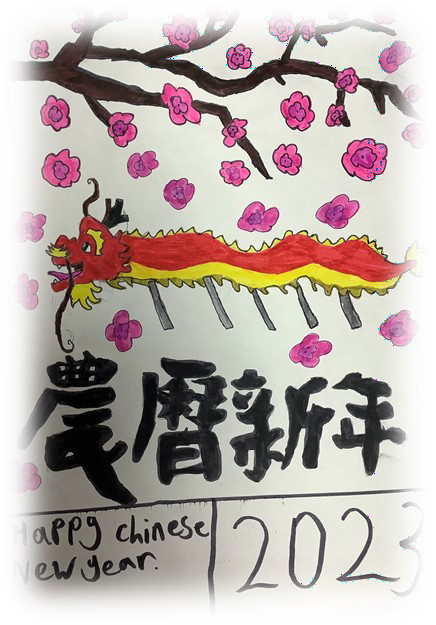 農曆新年
Happy chinese
New year.
2023